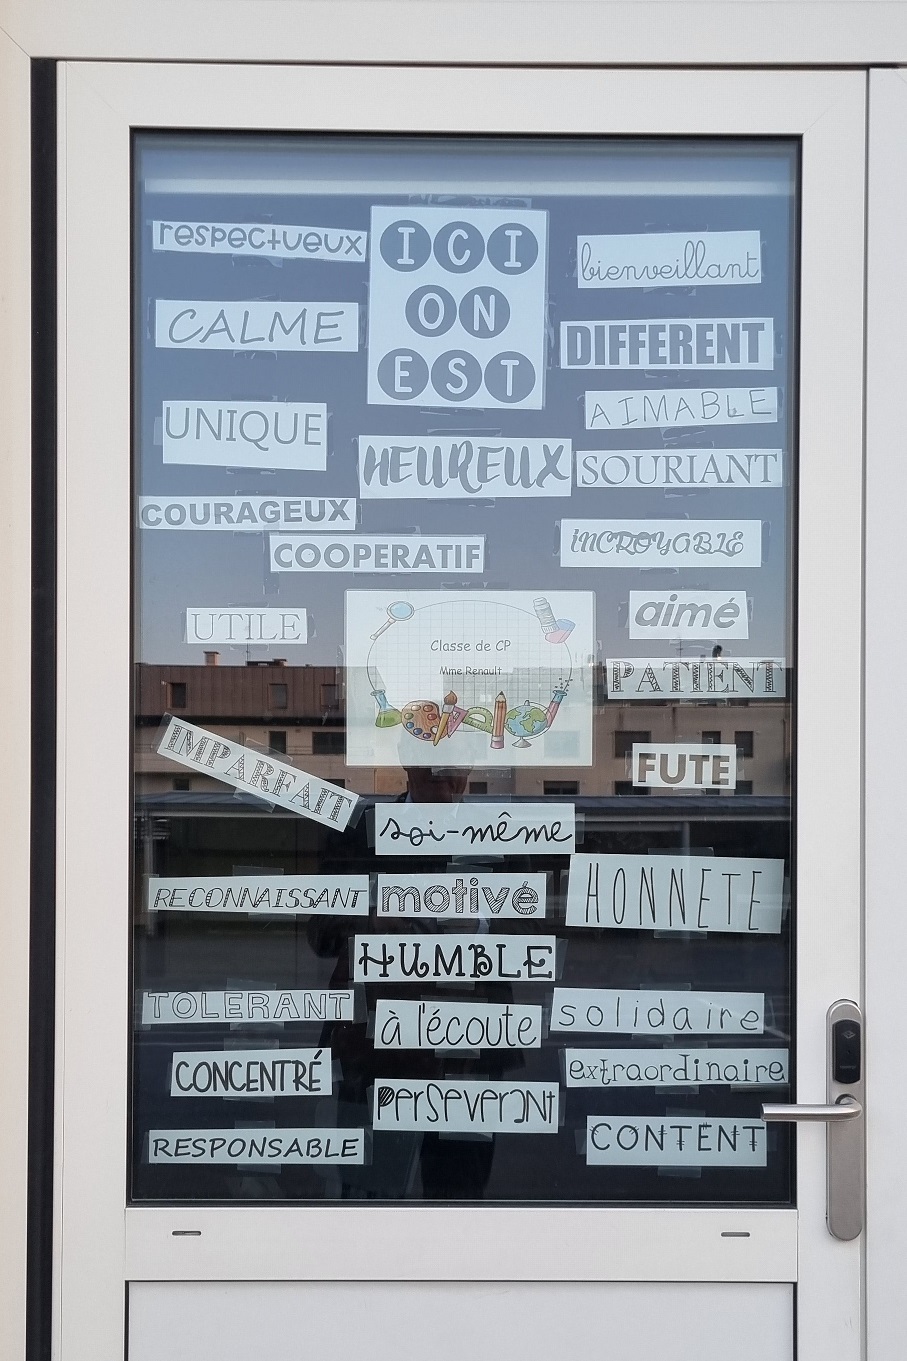 ICI
ON
EST
respectueux
bienveillant
CALME
DIFFERENT
AIMABLE
UNIQUE
HEUREUX
SOURIANT
COURAGEUX
COOPERATIF
INCROYABLE
UTILE
aimé
Classe de CP
Mme Renault
PATIENT
IMPARFAIT
FUTE
soi-même
RECONNAISSANT
motivé
HONNETE
HUMBLE
TOLERANT
à l'écoute
solidaire
CONCENTRÉ
extraordinaire
PerSeverANt
CONTENT
RESPONSABLE